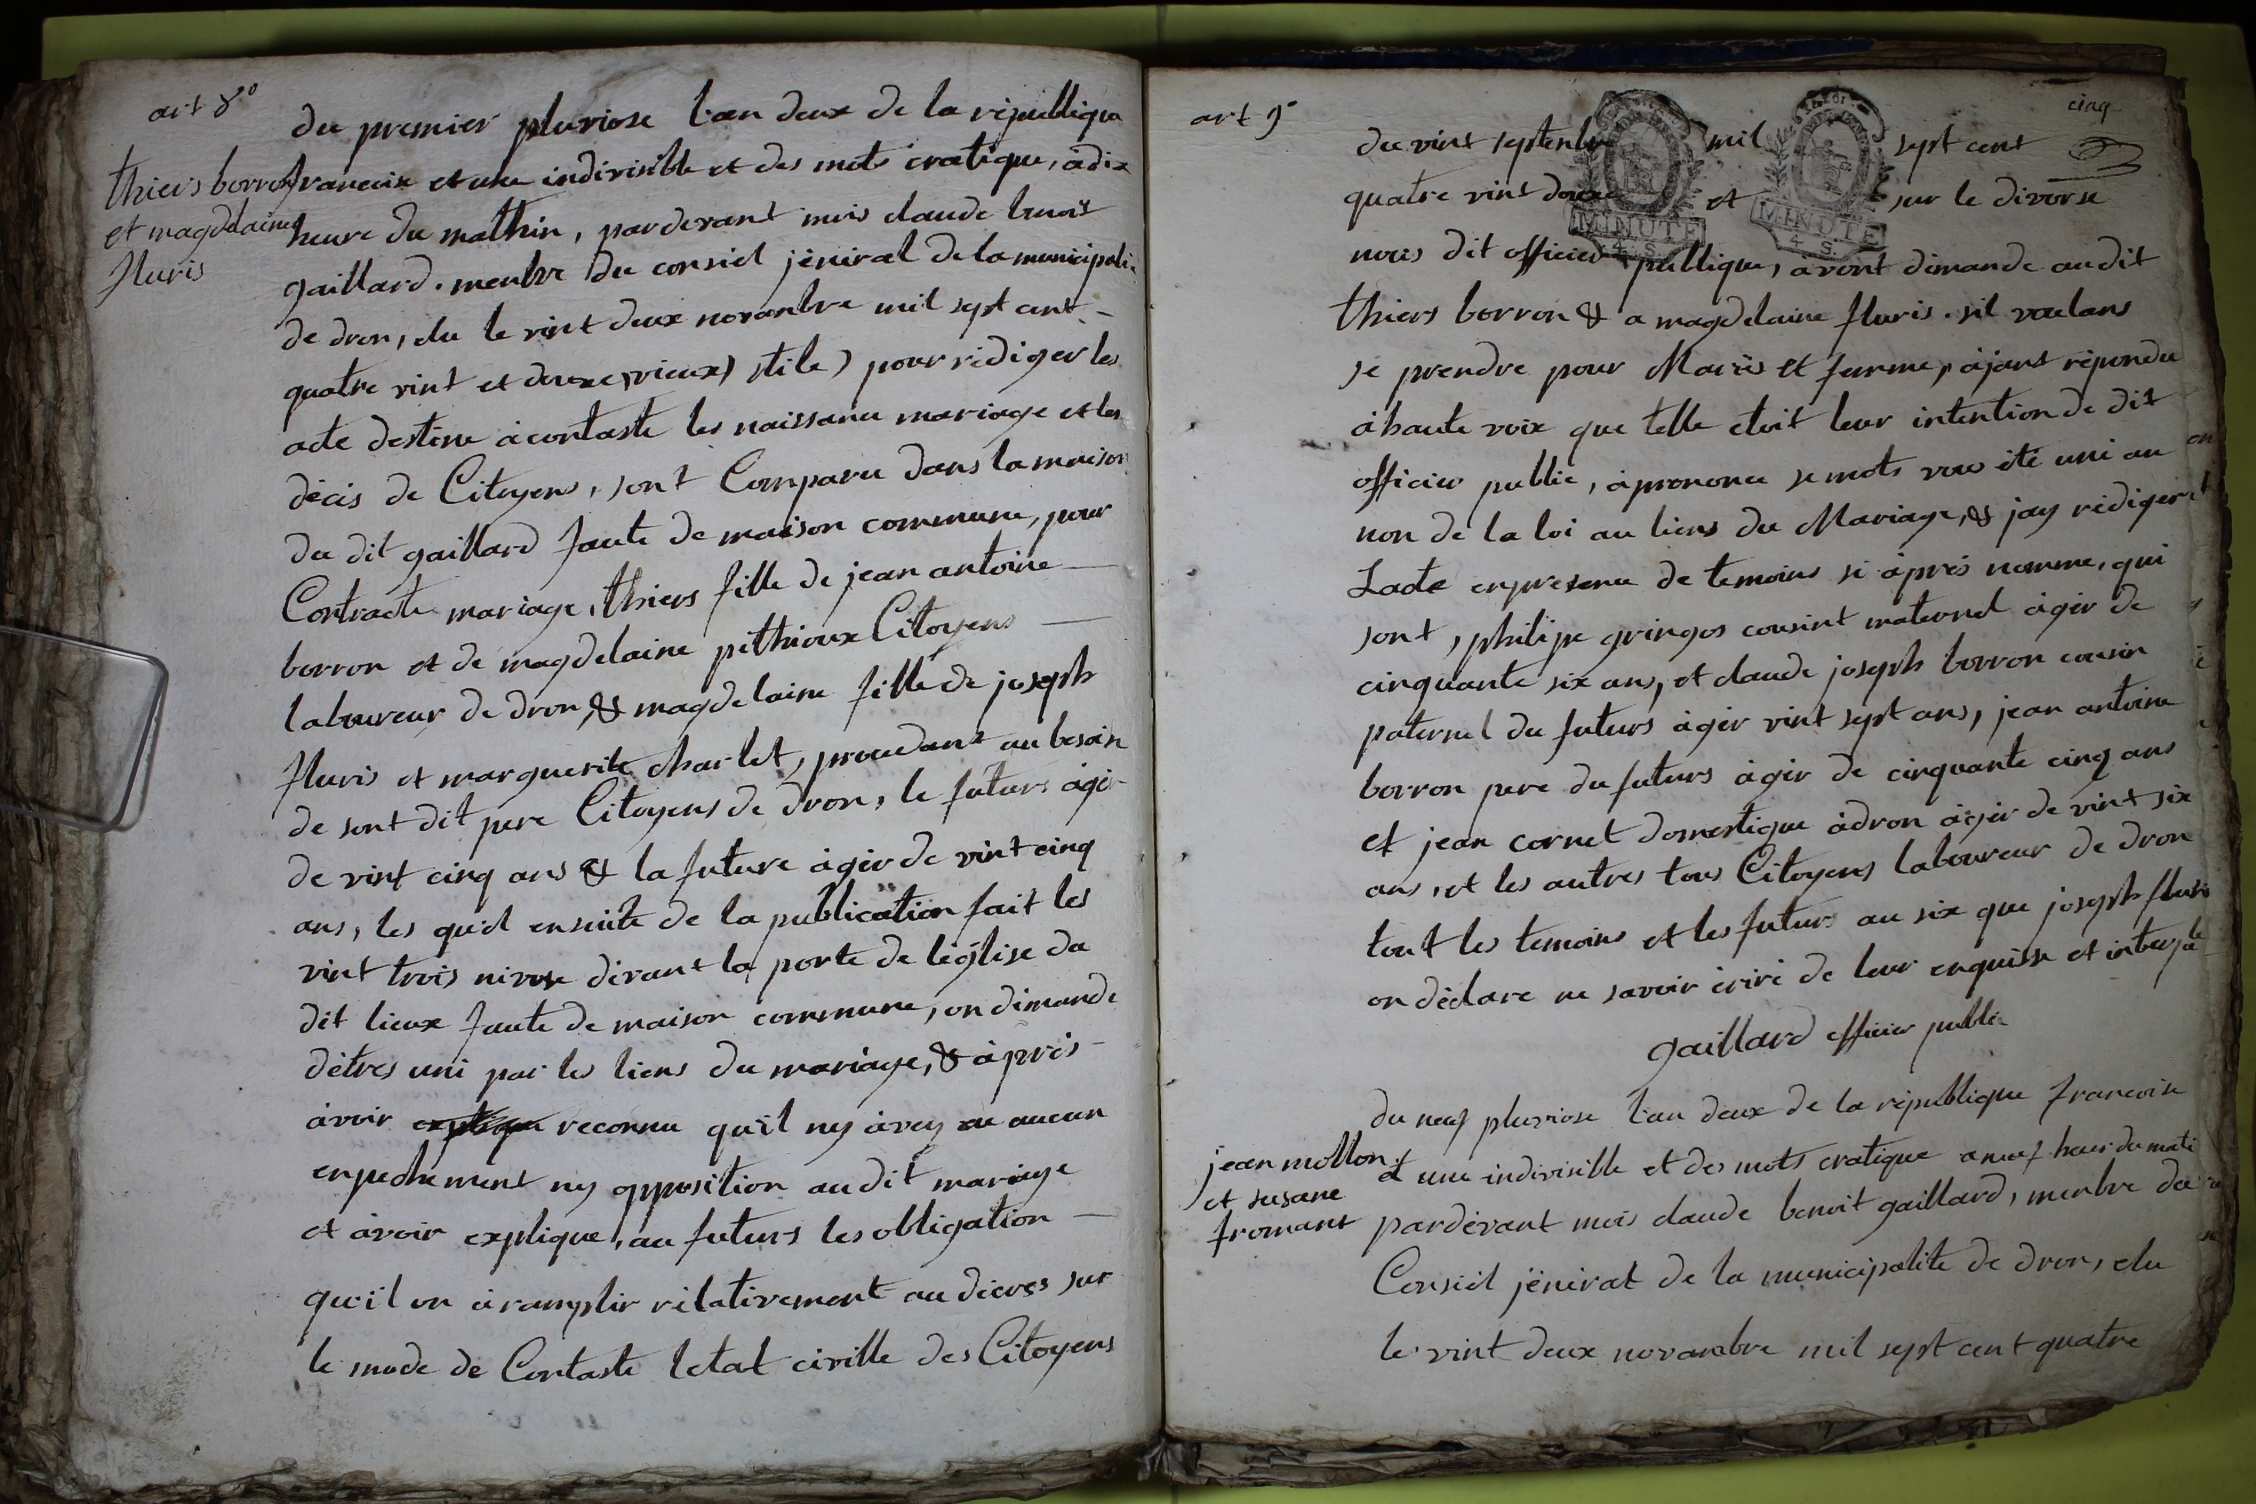 art 8°
thiers borron
et magdelaine
fluris
du premier pluviose l'an deux de la république
francoise et une indivisible et des mots cratique, à dix
heure du mathin, pardevant mois claude benoit
gaillard. menbre du conseil jéniral de la municipali
de dron, élu le vint deux novanbre mil sept cent
quatre vint et douze, vieux stile) pour rédiger les
acte destine à contaste les naissance mariage et les
décis de Citoyens, sont Comparu dans la maison
du dit gaillard faute de maison commune, pour
Contracte mariage, thiers fille de jean antoine
borron et de magdelaine pethioux Citoyens
laboureur de dron, & magdelaine fille de joseph
fluris et marguerite charlet, procedant au besoin
de sont dit pere Citoyens de dron, le futurs àgér
de vint cinq ans & la future àgér de vint cinq
ans, les quel ensuite de la publication fait les
vint trois nivose dévant la porte de léglise du
dit lieux faute de maison commune, on dimande
dètres uni par les liens du mariage, & àprès
àvoir reconnu quil ny àvey eu aucun
enpechement ny opposition au dit mariage
et àvoir explique, au futurs les obligation
qu'il on à ramplir rélativement au décres sur
le mode de Contaste letat civille des Citoyens
art 9°
cinq
du vint septenbre mil sept cent
quatre vint douze et sur le divorse
MINUTE
4 S.
MINUTE
4 S.
nous dit officier publique, àvont dimande audit
thiers borron & a magdelaine fluris. sil voulans
se prendre pour Mariès et femme, àjant répondu
à haute voix que telle étoit leur intention de dit
officier public, à prononce se mots vous été uni au
non de la loi au liens du Mariage, & jay rédiger
Lacte enpresence de temoins si àprès nomme, qui
sont, philipe gringos cousint maternel àgér de
cinquante six ans, et claude joseph borron cousin
paternel du futurs àgér vint sept ans, jean antoine
borron pere du futurs àgér de cinquante cinq ans
et jean cornet domestique àdron àgér de vint six
ans, et les autres tous Citoyens laboureur de dron
tout les temoins et les futurs au six que joseph fluris
on déclare ne savoir écrire de leur enquisse et
gaillard officier public
jean mollon
et susane
fromant
du neuf pluviose l'an deux de la république francoise
et une indivisible et des mots cratique a neuf heur du mati
pardévant mois claude benoit gaillard, menbre du
Conseil jéniral de la municipalite de dron, élu
le vint deux novanbre mil sept cent quatre